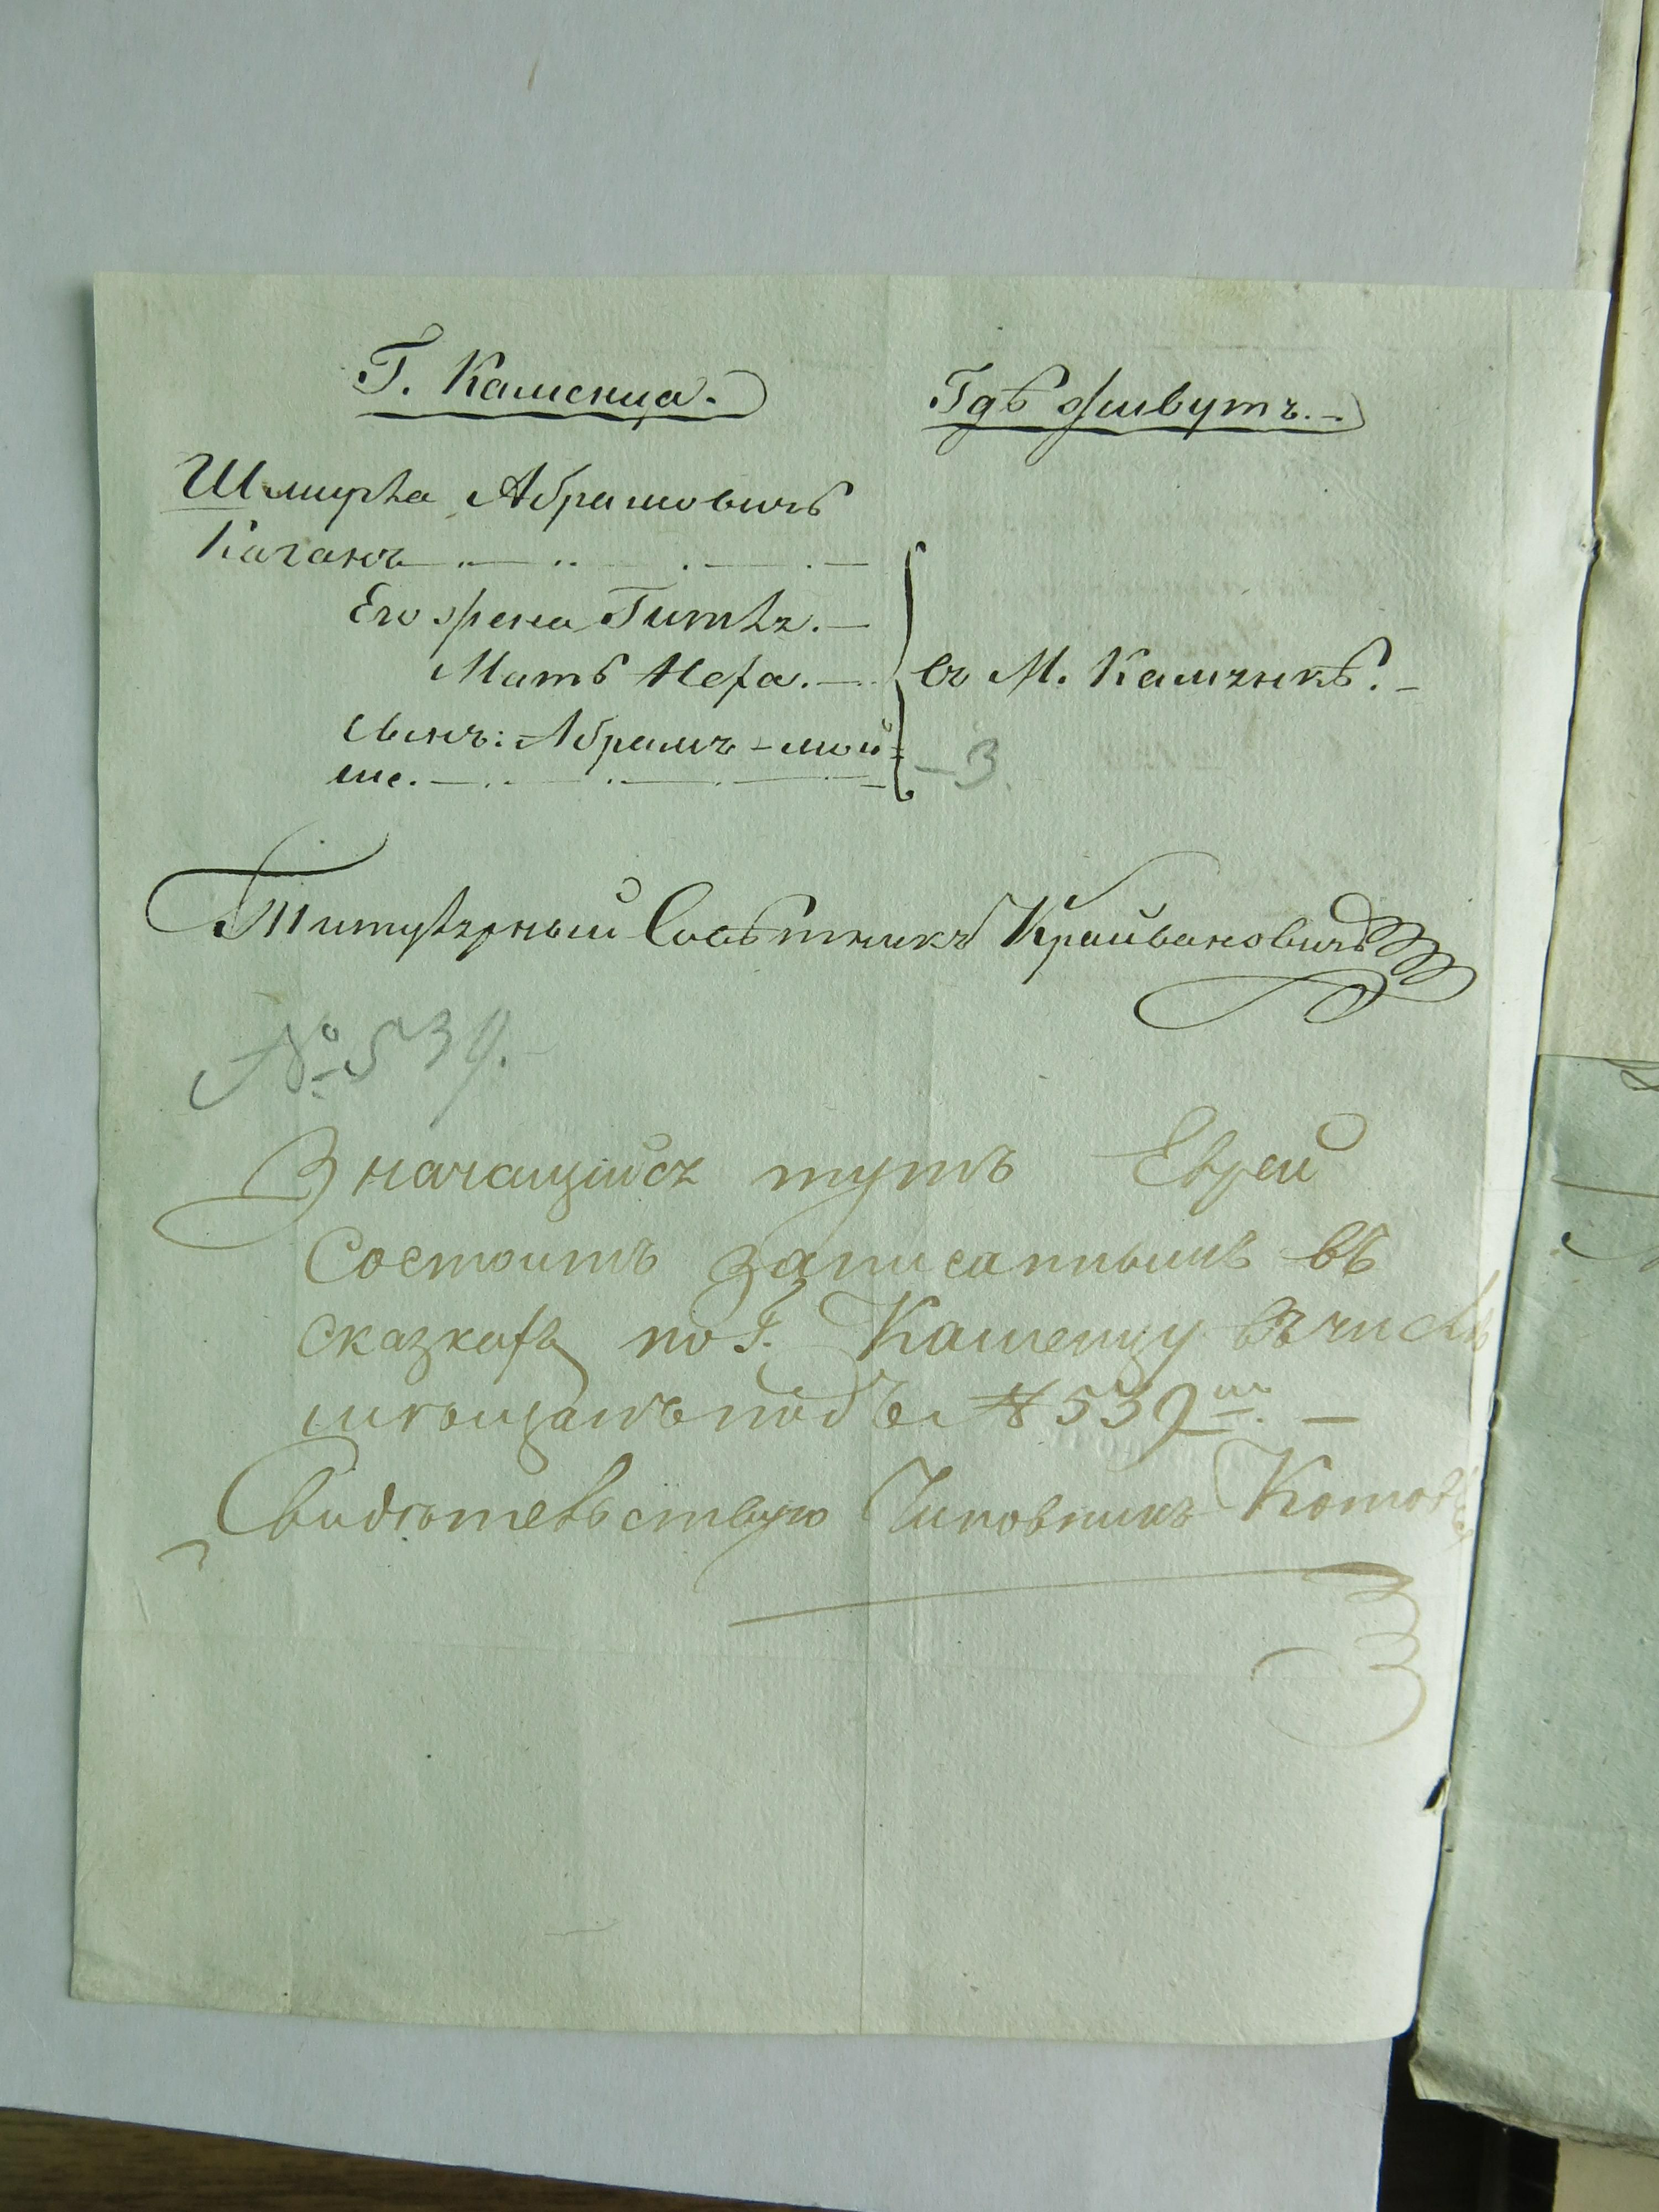 Г. Каменца.
Гдѣ живутъ.-
Шмирла Абрамовичъ
Каганъ
Его жена Гитля.—
Мать Неха.—
Сынъ: Абрамъ-Мой=
ше.
въ М. Калчикѣ.-
-3.
Титулярный Совѣтникъ Крайвановичь
№ 539.-
Значащійся тутъ Еврей
Состоитъ записаннымъ въ
сказкахъ по Г. Каменцу въ числѣ
мѣщанъ подъ № 539 мъ. —
Свидѣтельствую Чиновникъ